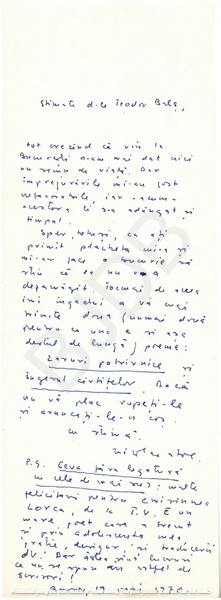 Stimate d-le Teodor Balș,
tot crezînd că vin la
București n-am mai dat nici
un semn de viață. Dar
împrejurările mi-au fost
nefavorabile, iar acum
acestora li s-a adăugat și
timpul.
Sper, totuși, că ați
primit placheta mea și
mi-ar face o bucurie să
știu că se nu v-a
dezamăgit. Tocmai de aceea
îmi îngădui a vă mai
trimite două (numai două
pentru ca una e și așa
destul de lungă) poeme:
Zaruri potrivnice și
Îngerul cîrtițelor. Dacă
nu vă plac rupeți-le
și aruncați-le-n coș.
Cu stimă
P.S. Ceva fără legătură
cu cele de mai sus: multe
felicitări pentru emisiunea
Lorca, de la T.V. E un
mare poet care a trecut
și prin adolescența mea
grație, desigur, și traducerii
dv. Dar astea sînt lucruri
ce nu se spun des astfel de
scrisori!
19 mai 1970